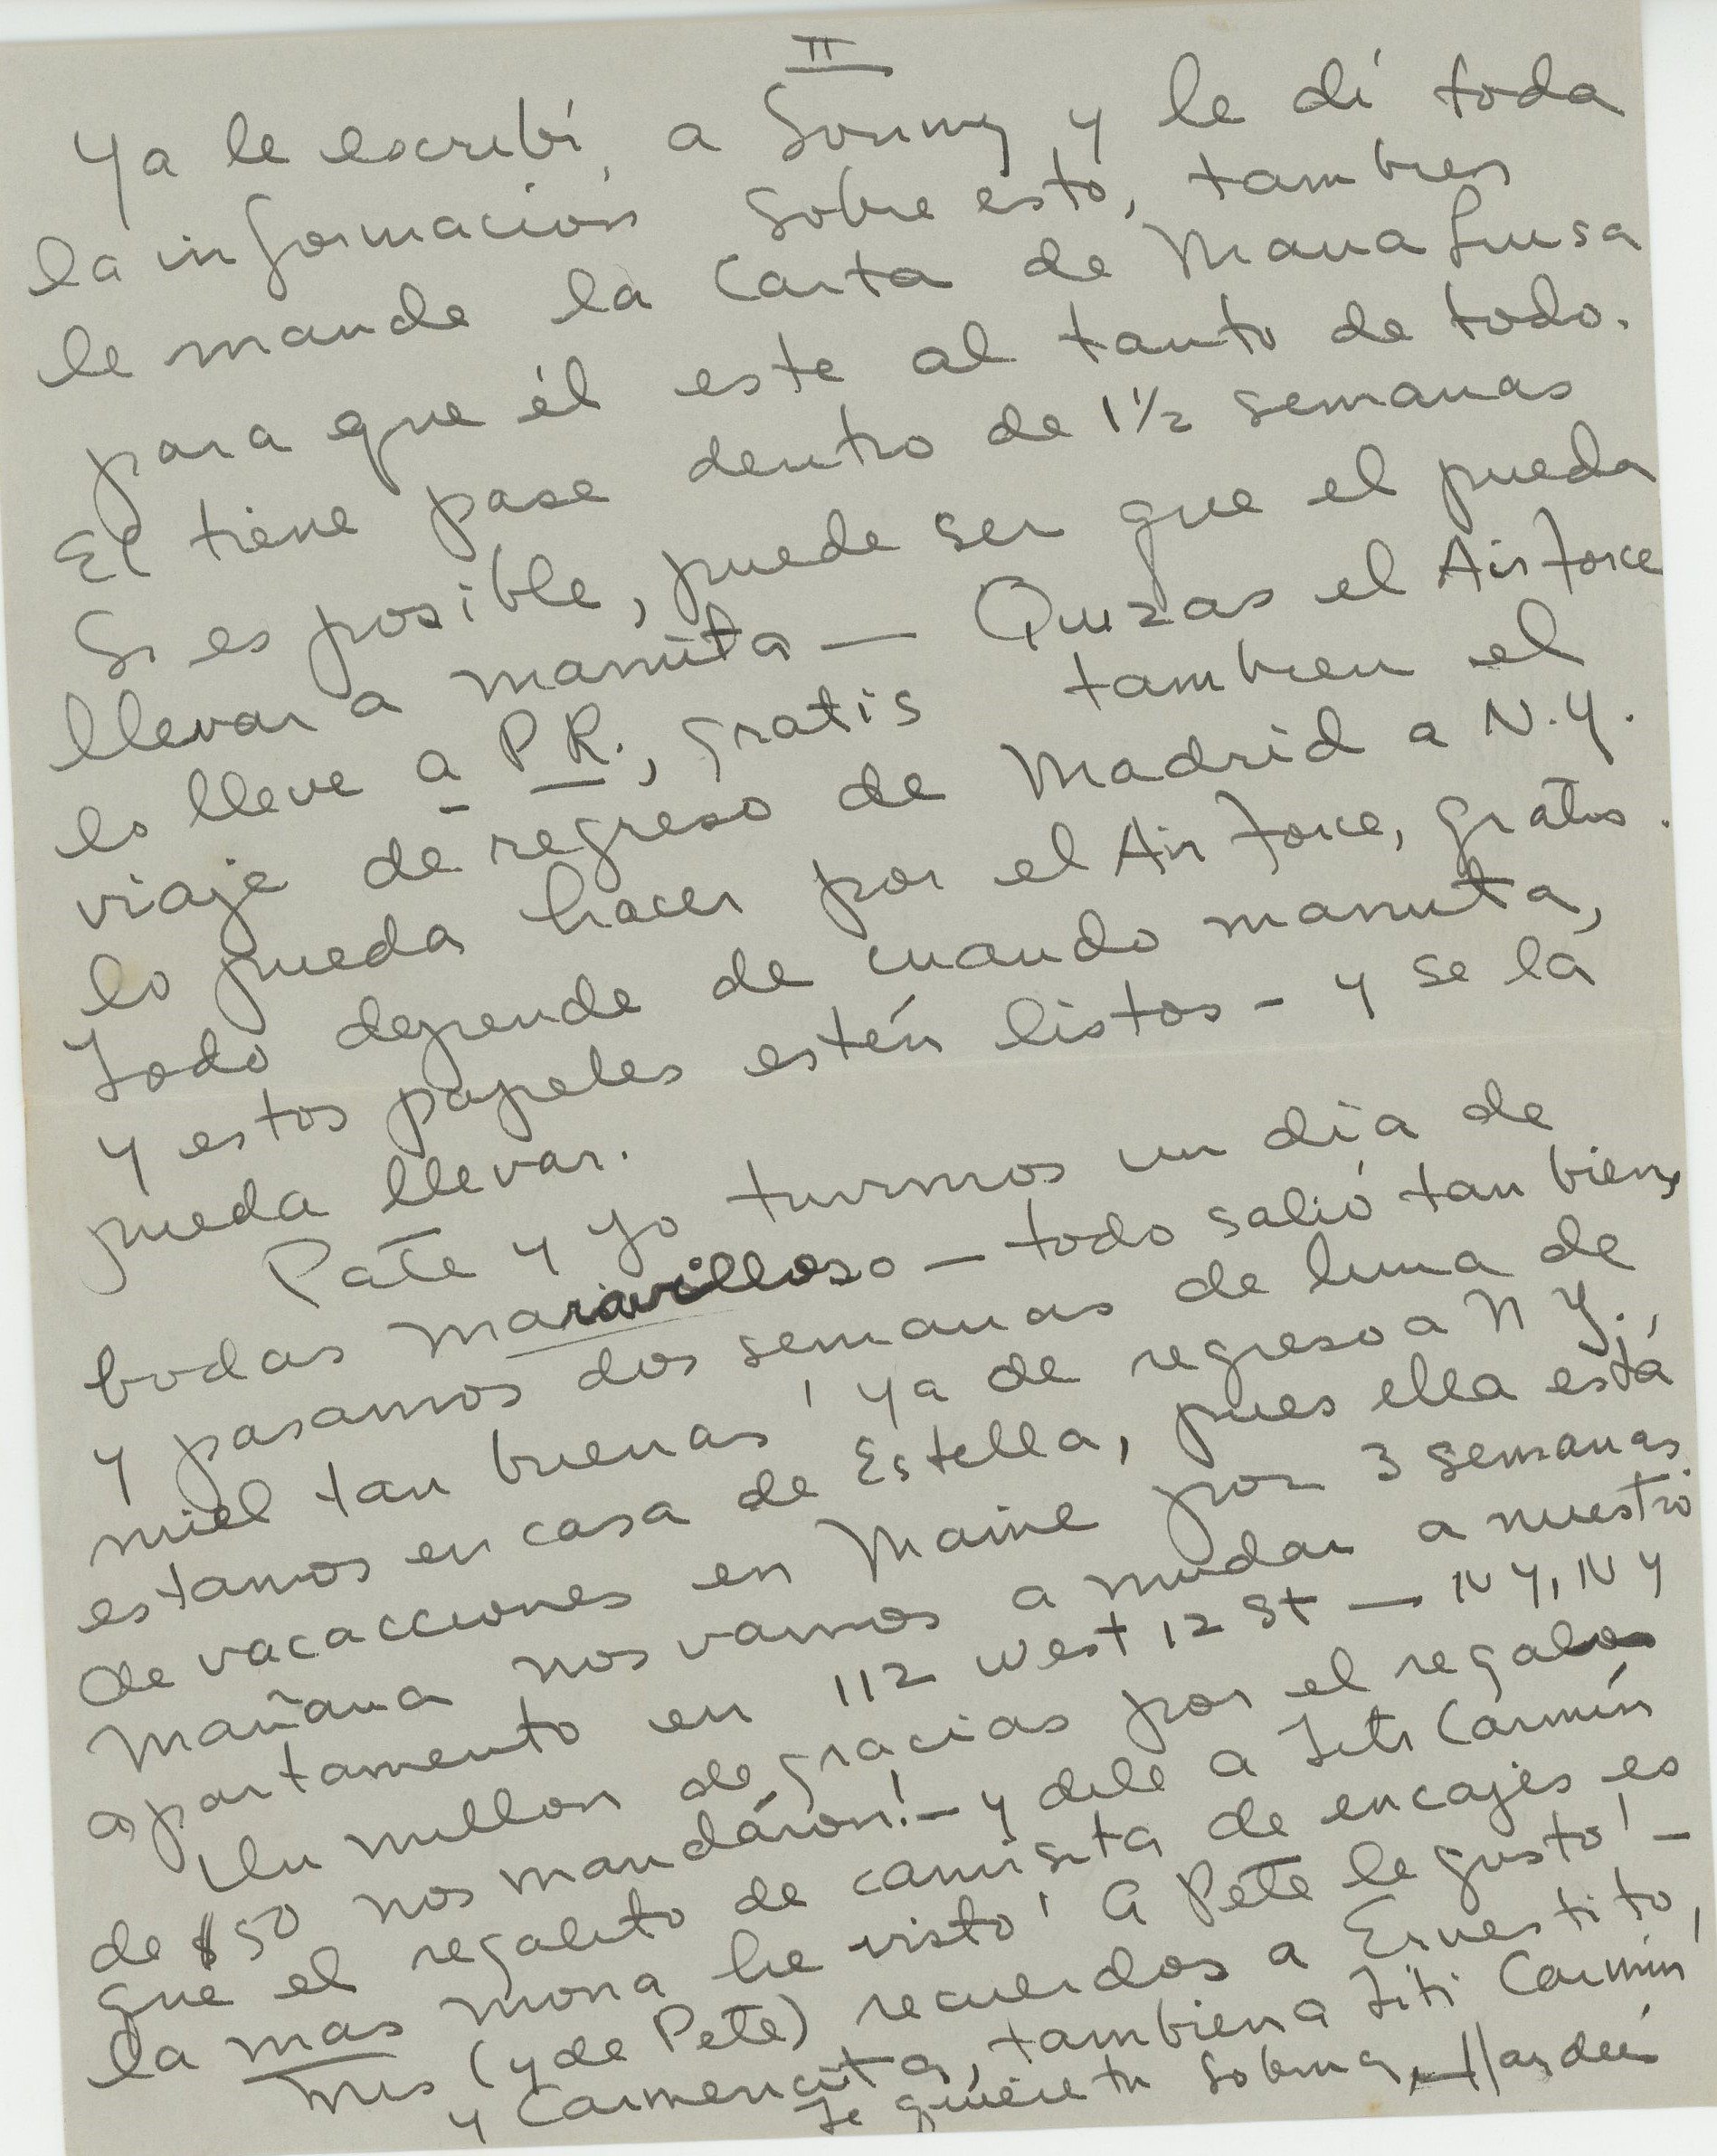 II
Ya le escribí a Sonny y le dí toda
la información sobre esto, tambien
le mande la carta de Maria Luisa
para que él este al tanto de todo.
El tiene pase dentro de 1 1/2 semanas
Si es posible, puede ser que el pueda
llevar a mamita — Quizas el Air Force
lo lleve a P.R., gratis tambien el
viaje de regreso de Madrid a N.Y.
lo pueda hacer por el Air Force, gratis.
Todo depende de cuando mamita,
y estos papeles estén listos - y se la
pueda llevar.
Pete y yo tuvimos un día de
bodas maravilloso — todo salió tan bien,
y pasamos dos semanas de luna de
miel tan buenas! Ya de regreso a N Y.,
estamos en casa de Estella, pues ella está
de vacacciones en Maine por 3 semanas.
Mañana nos vamos a mudar a nuestro
apartamento en 112 West 12 St — N Y, N Y
Un millon de gracias por el regalo
de $50 nos mandáron! — y dile a Titi Carmín
que el regalito de camisita de encajes es
la mas mona he visto! A Pete le gusto! —
Mis (y de Pete) recuerdos a Ernestito,
y Carmencita, tambien a Titi Carmín
Te quiere tu sobrina, Haydeé